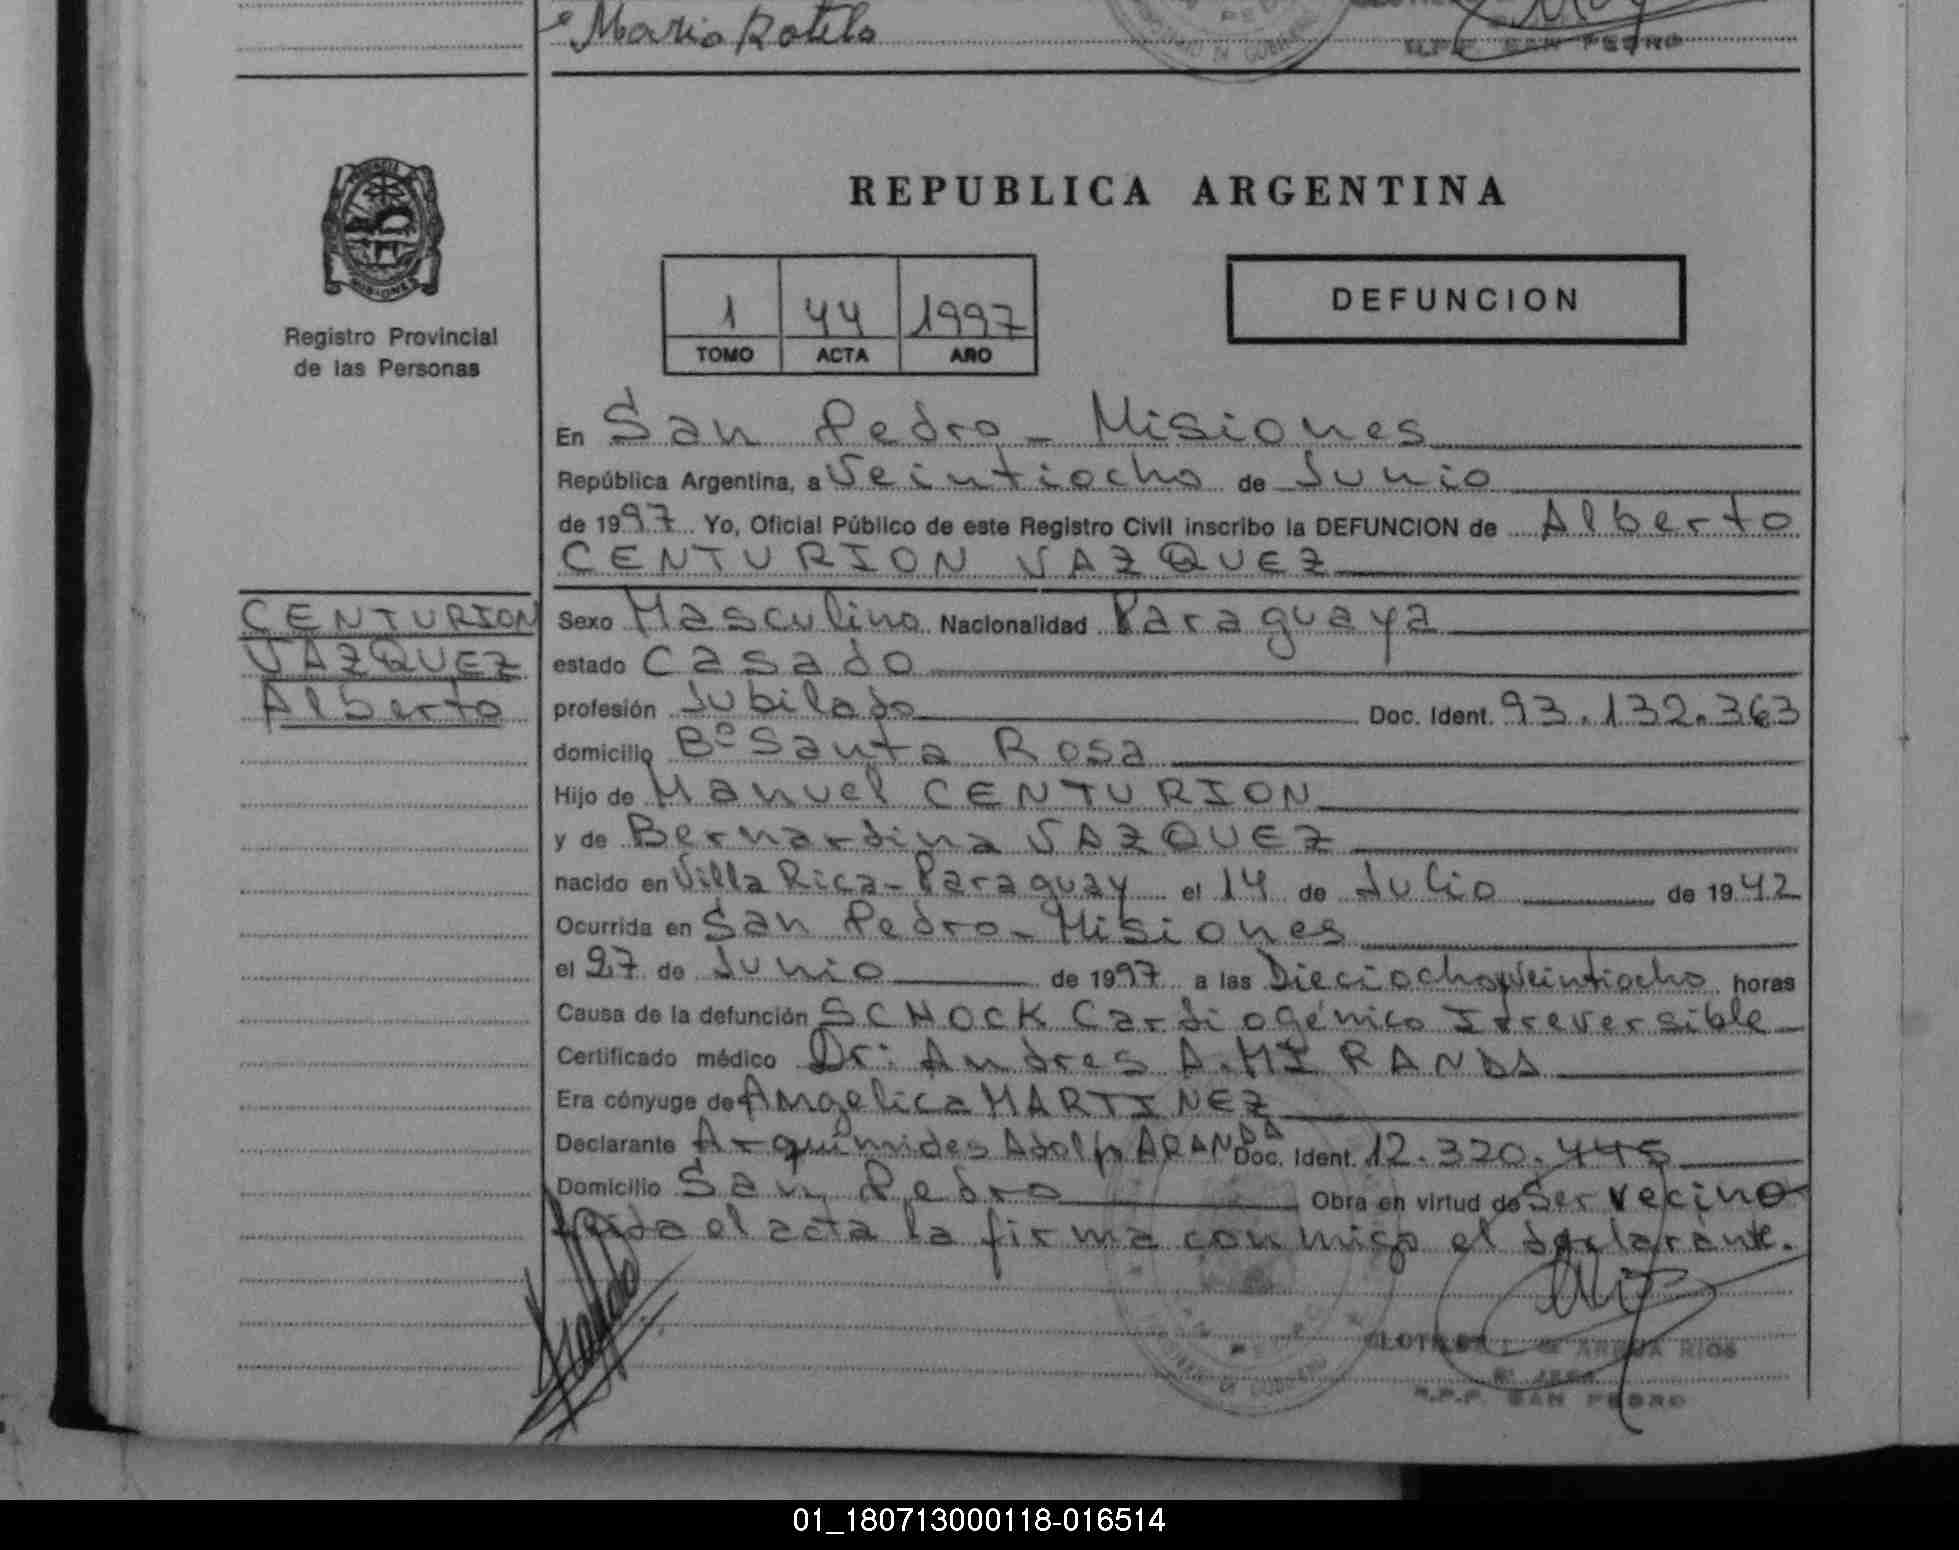 Mario Rotela
R.P.P. SAN PEDRO
REPUBLICA ARGENTINA
1 44 1997
TOMO ACTA AÑO
DEFUNCION
MISIONES
Registro Provincial
de las Personas
En San Pedro - Misiones
República Argentina, a Veintiocho de Junio
de 1997 Yo, Oficial Público de este Registro Civil inscribo la DEFUNCION de Alberto
CENTURION VAZQUEZ
CENTURION
VAZQUEZ
Alberto
Sexo Masculino Nacionalidad Paraguaya
estado Casado
profesión Jubilado Doc. Ident. 93.132.363
domicilio Bº Santa Rosa
Hijo de Manuel CENTURION
y de Bernardina VAZQUEZ
nacido en Villa Rica - Paraguay el 14 de Julio de 1942
Ocurrida en San Pedro - Misiones
el 27 de Junio de 1997 a las Dieciocho y Veintiocho horas
Causa de la defunción SCHOCK Cardiogénico Irreversible
Certificado médico Dr: Andres A. MIRANDA
Era cónyuge de Angelica MARTINEZ
Declarante Arquimides Adolfo ARANDA Doc. Ident. 12.320.445
Domicilio San Pedro Obra en virtud de Ser vecino
Leida el acta la firma conmigo el declarante.
RIOS
R.P.P. SAN PEDRO
01_180713000118-016514